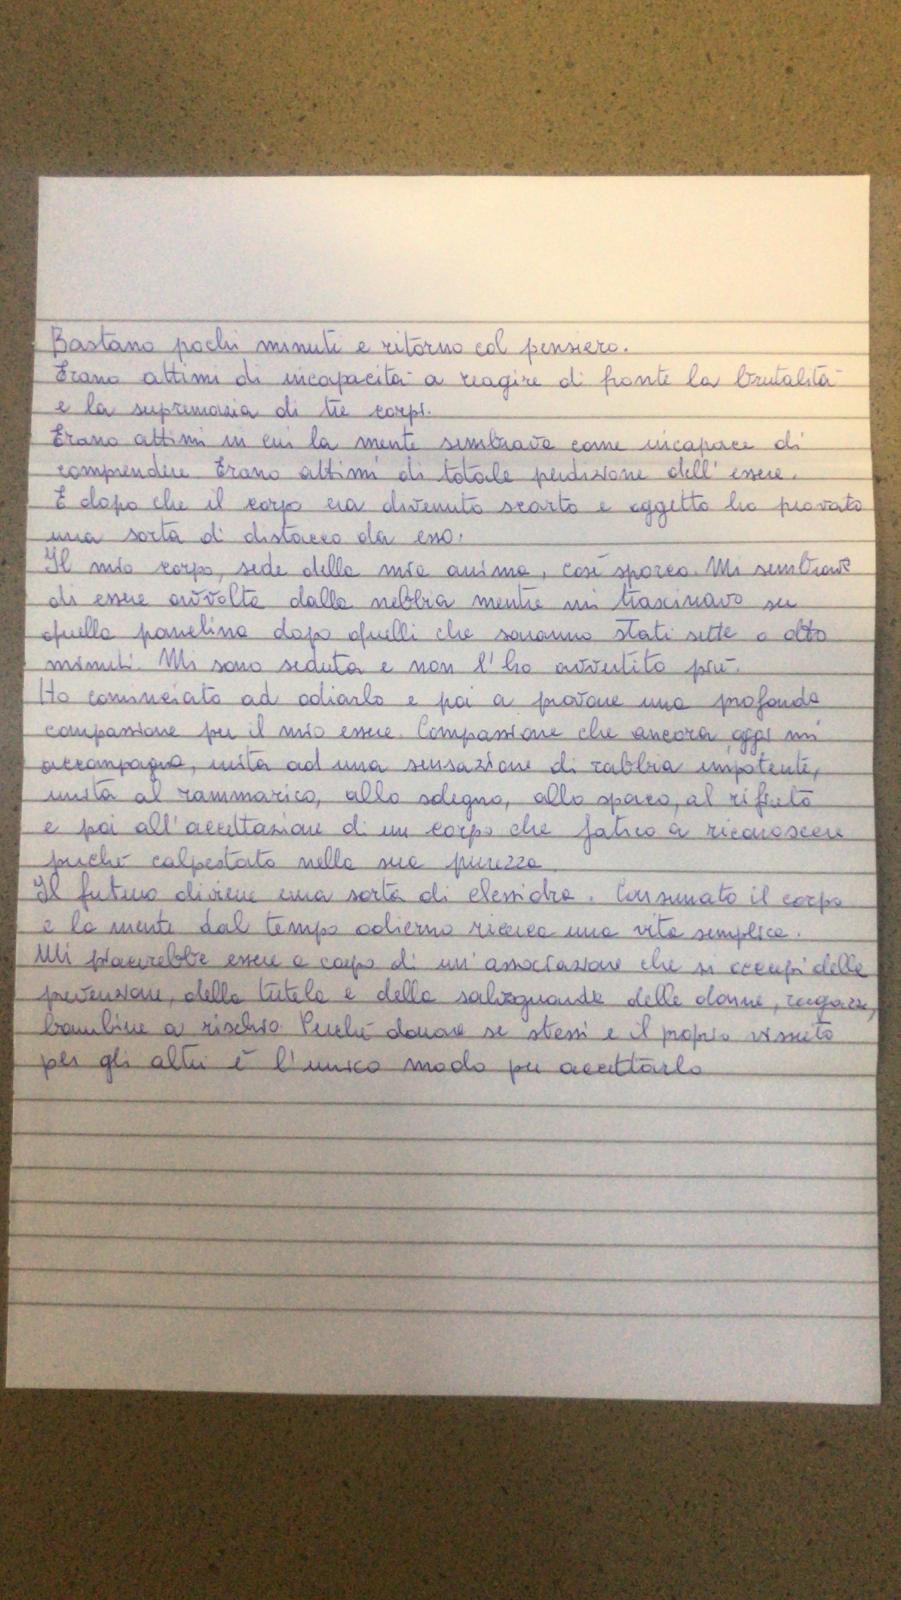 Bastano pochi minuti e ritorno col pensiero.
Erano attimi di incapacità a reagire di fronte la brutalità
e la supremazia di tre corpi.
Erano attimi in cui la mente sembrava come incapace di
comprendere. Erano attimi di totale perdizione dell'essere.
E dopo che il corpo era divenuto scarto e oggetto ho provato
una sorta di distacco da esso.
Il mio corpo, sede della mia anima, così sporco. Mi sembrava
di essere avvolta dalla nebbia mentre mi trascinavo su
quella panchina dopo quelli che saranno stati sette o otto
minuti. Mi sono seduta e non l'ho avvertito più.
Ho cominciato ad odiarlo e poi a provare una profonda
compassione per il mio essere. Compassione che ancora oggi mi
accompagna, unita ad una sensazione di rabbia impotente,
unita al rammarico, allo sdegno, allo sporco, al rifiuto
e poi all'accettazione di un corpo che fatico a riconoscere
perché calpestato nella sua purezza
Il futuro diviene una sorta di clessidra. Consumato il corpo
e la mente dal tempo odierno ricerca una vita semplice.
Mi piacerebbe essere a capo di un'associazione che si occupi della
prevenzione, della tutela e della salvaguardia delle donne, ragazze,
bambine a rischio. Perché donare se stessi e il proprio vissuto
per gli altri è l'unico modo per accettarlo